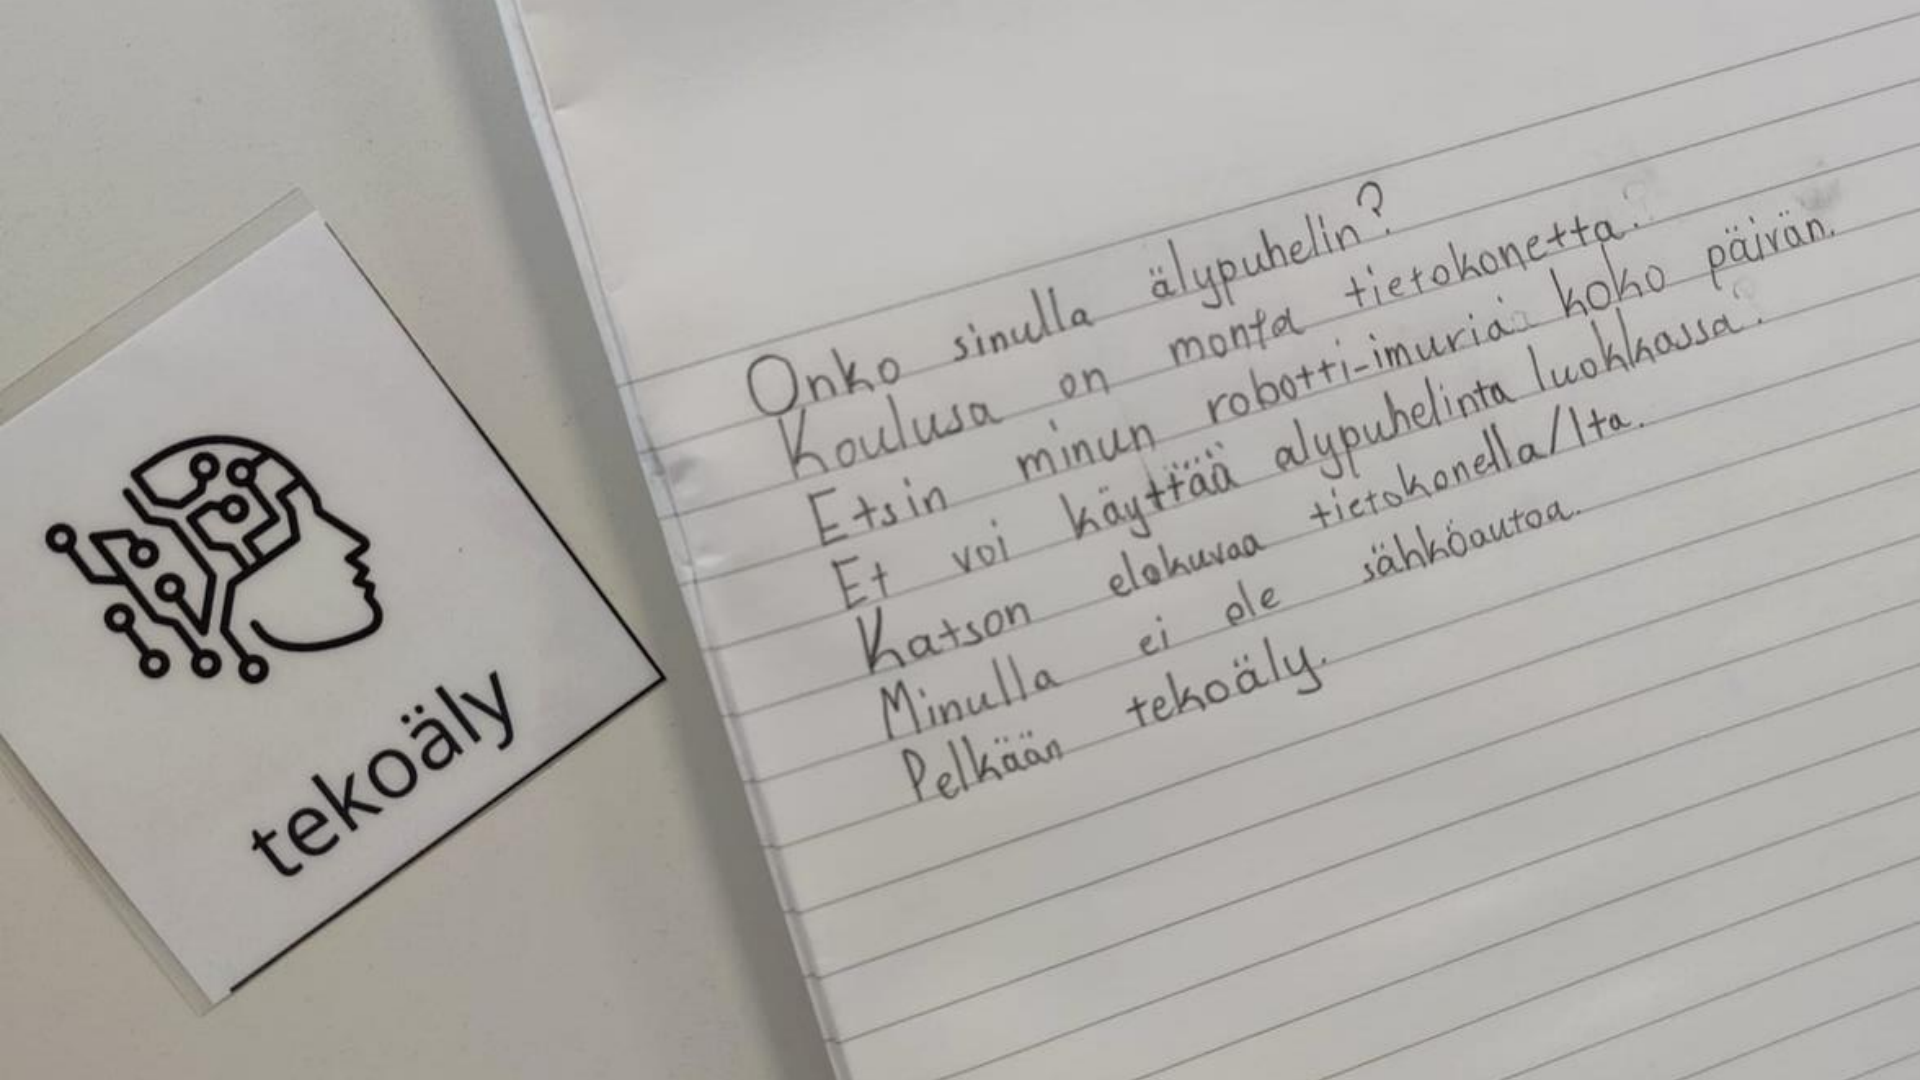 tekoäly
Onko sinulla älypuhelin?
Koulusa on monta tietokonetta.
Etsin minun robotti-imuria koko päivän.
Et voi käyttää alypuhelinta luokkassa.
Katson elokuvaa tietokonella/lta.
Minulla ei ole sähköautoa.
Pelkään tekoäly.